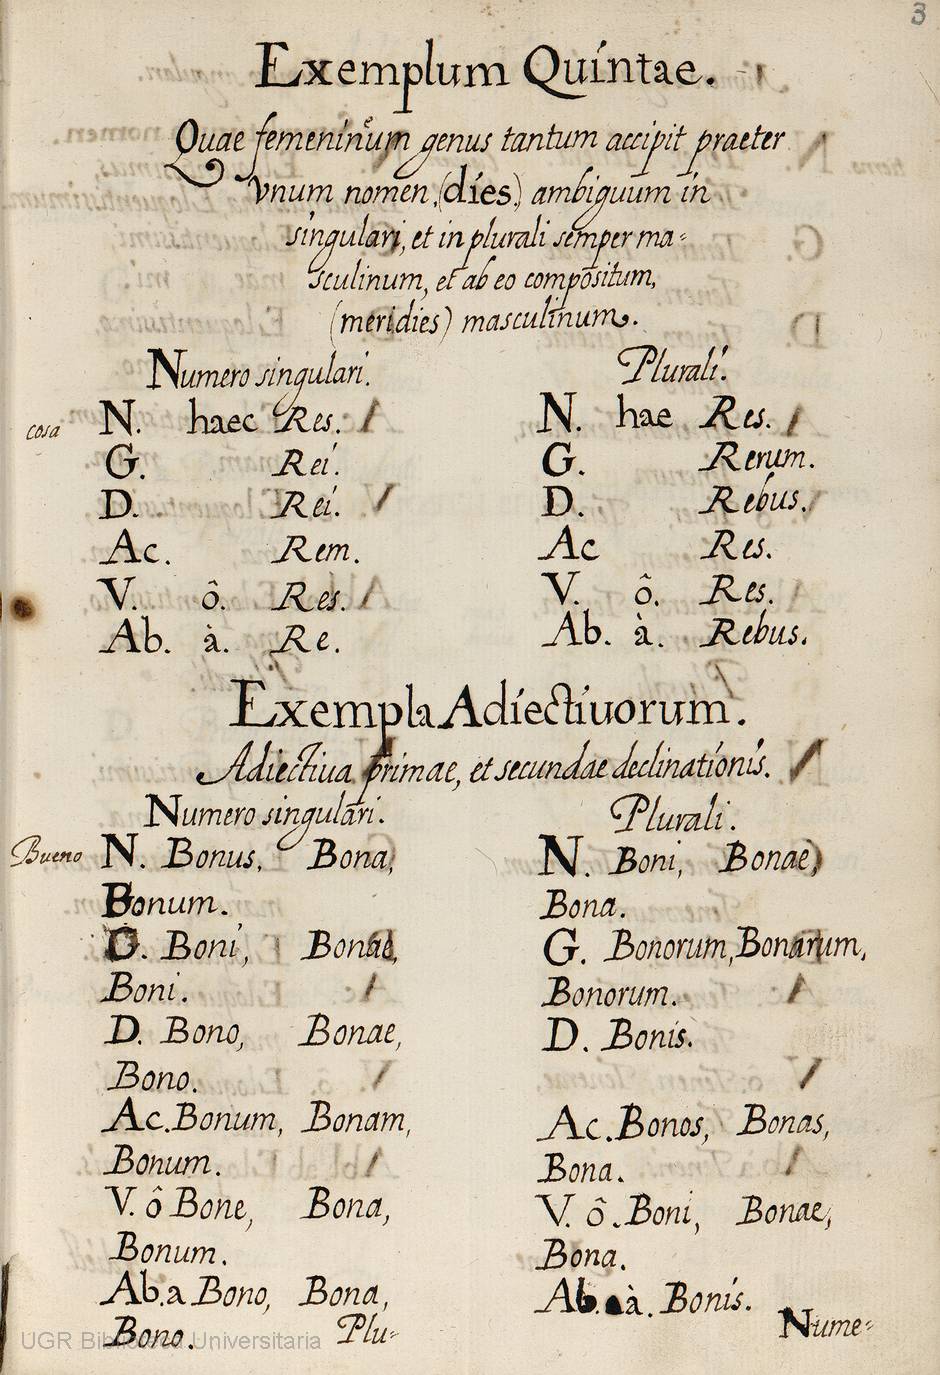 3
Exemplum Quintae.
Quae femeninum genus tantum accipit praeter
vnum nomen (dies) ambiguum in
singulari, et in plurali semper ma-
sculinum, et ab eo compositum,
(meridies) masculinum.
Numero singulari.
cosa N. haec Res.
G. Rei.
D. Rei.
Ac. Rem.
V. ô. Res.
Ab. à. Re.
Plurali.
N. hae Res.
G. Rerum.
D. Rebus.
Ac Res.
V. ô. Res.
Ab. à. Rebus.
Exempla Adiectiuorum.
Adiectiua primae, et secundae declinationis.
Numero singulari.
Bueno N. Bonus, Bona,
Bonum.
G. Boni, Bonae,
Boni.
D. Bono, Bonae,
Bono.
Ac. Bonum, Bonam,
Bonum.
V. ô Bone, Bona,
Bonum.
Ab. a Bono, Bona,
Bono. Plu-
Plurali.
N. Boni, Bonae,
Bona.
G. Bonorum, Bonarum,
Bonorum.
D. Bonis.
Ac. Bonos, Bonas,
Bona.
V. ô. Boni, Bonae,
Bona.
Ab. à. Bonis.
Nume-
UGR Biblioteca Universitaria